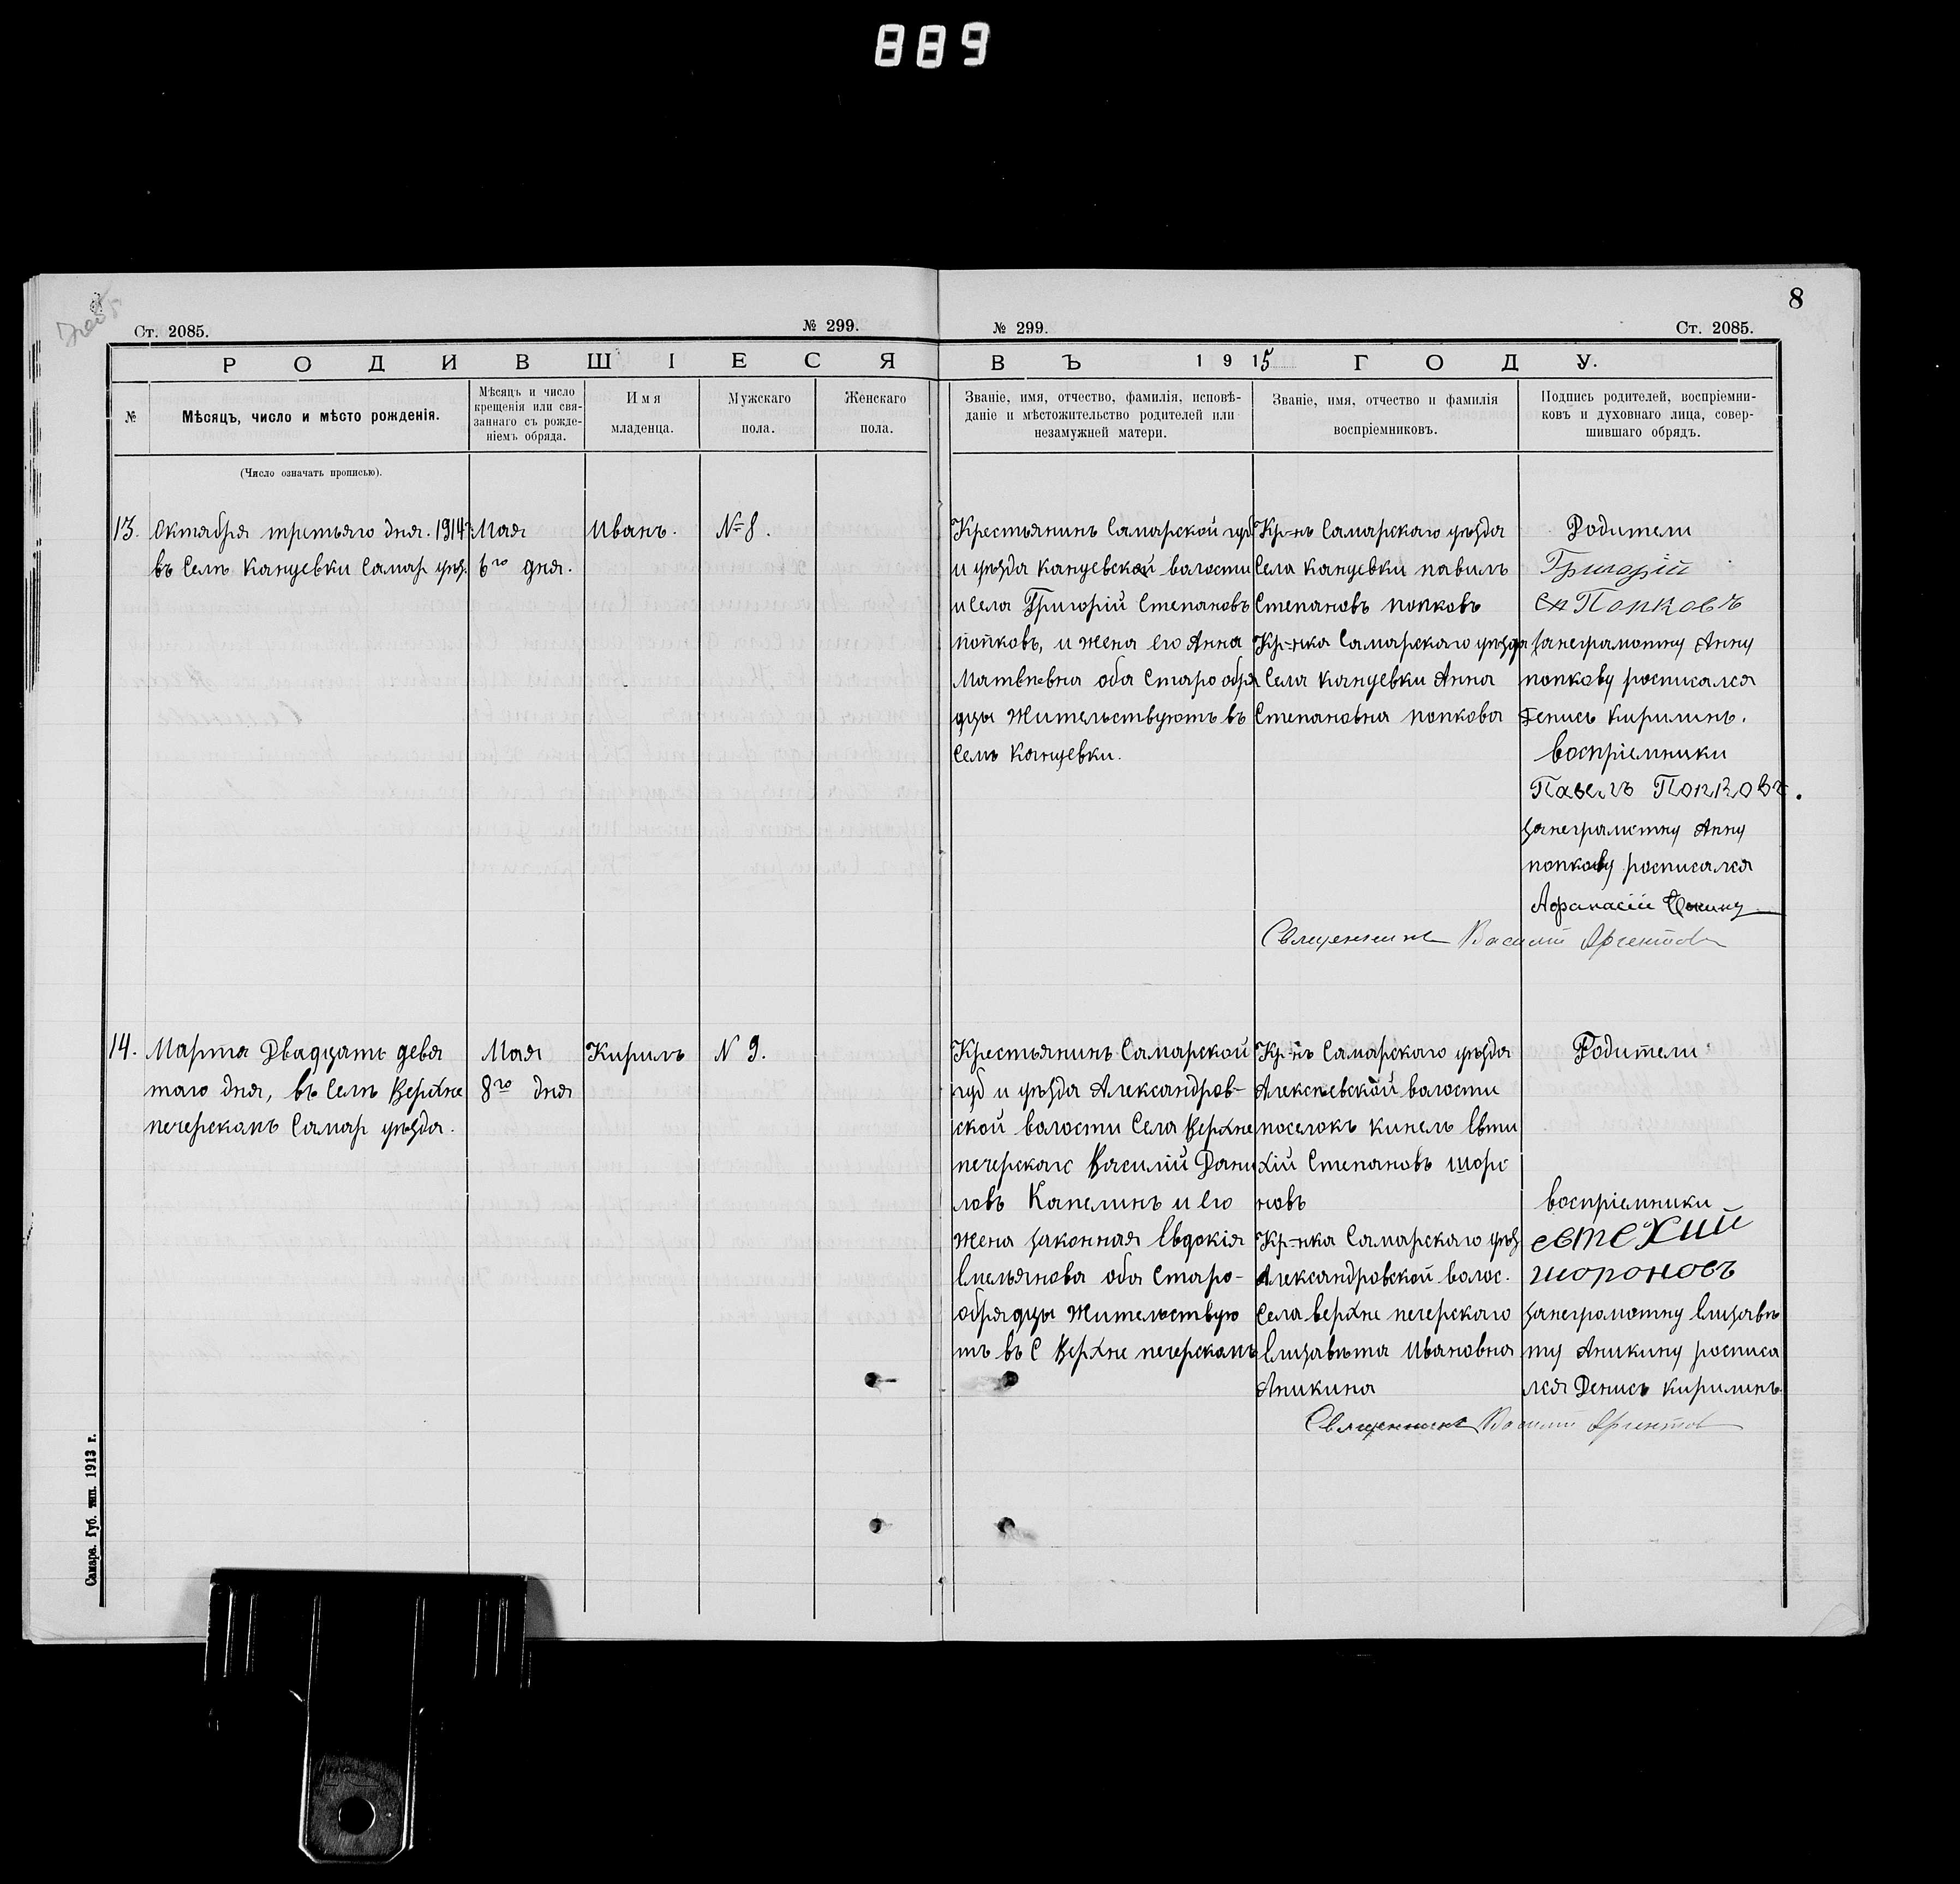 889
8
Ст. 2085.
№ 299.
№ 299.
Ст. 2085.
РОДИВШІЕСЯ
ВЪ 1915 ГОДУ.
№
Мѣсяцъ, число и мѣсто рожденія.
Мѣсяцъ и число
крещенія или свя-
заннаго съ рожде-
ніемъ обряда.
Имя
младенца.
Мужскаго
пола.
Женскаго
пола.
Званіе, имя, отчество, фамилія, исповѣ-
даніе и мѣстожительство родителей или
незамужней матери.
Званіе, имя, отчество и фамилія
воспріемниковъ.
Подпись родителей, воспріемни-
ковъ и духовнаго лица, совер-
шившаго обрядъ.
(Число означать прописью).
13.
Октября третьяго дня. 1914
въ Селѣ Кануевки Самар уѣз.
Мая
6го дня.
Иванъ.
№ 8.
Крестьянинъ Самарской губ
и уѣзда Кануевской валости
и Села Григорій Степановъ
попковъ, и жена его Анна
Матвѣевна оба Старообря
дцы Жительствуютъ въ
Селѣ Кануевки.
Кр-нъ Самарскаго уѣзда
Села Кануевки павилъ
Степановъ попковъ
Кр-нка Самарскаго уѣзда
Села Кануевки Анна
Степановна попкова
Родители
Григорій
Попковъ
занеграмотну Анну
попкову росписался
Денисъ Кирилинъ.
воспріемники
Павелъ Попковъ.
занеграмотну Анну
попкову росписался
Афанасій
Священникъ Василій Аргентовъ
14.
Марта Двадцать девя
таго дня, въ Селѣ Верхне
печерскамъ Самар уѣзда.
Мая
8го дня
Кирилъ
N 9.
Крестьянинъ Самарской
губ и уѣзда Александров-
ской валости Села Верхне
печерскаго Василій Дани
ловъ Капелинъ и его
жена законная Евдокія
Емельянова оба Старо-
обрядцы Жительствую
тъ въ С Верхне печерскамъ
Кр-нъ Самарскаго уѣзда
Алексѣевской валости
поселокъ кинель Евти
хій Степановъ шоро
новъ
Кр-нка Самарскаго уѣз
Александровской волос.
Села верхне печерского
Елизавѣта Ивановна
Аникина
Родители
воспріемники
евтехий
шороновъ
занеграмотну Елизавѣ
ту Аникину росписа
лся Денисъ Кирилинъ
Священникъ Василій Аргентовъ
Самара. Губ. тип. 1913 г.